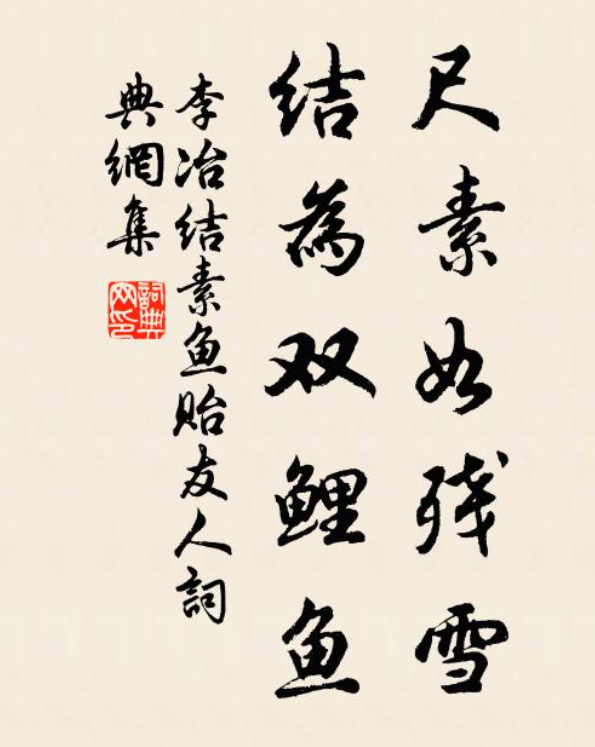 尺素如残雪
结為双鲤鱼
李冶结素鱼贻友人詞
典網集
詞典
网印